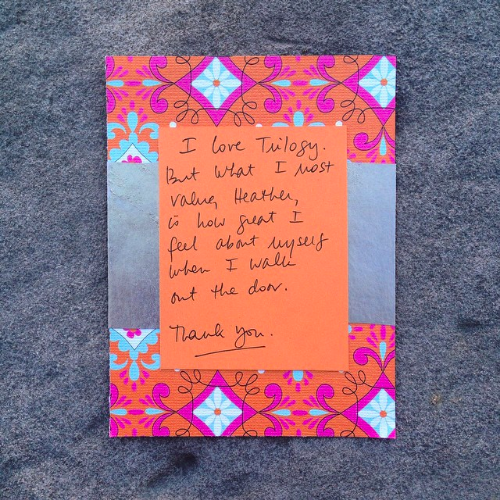 I love Trilogy.
But what I most
value, Heather,
is how great I
feel about myself
when I walk
out the door.
Thank you.